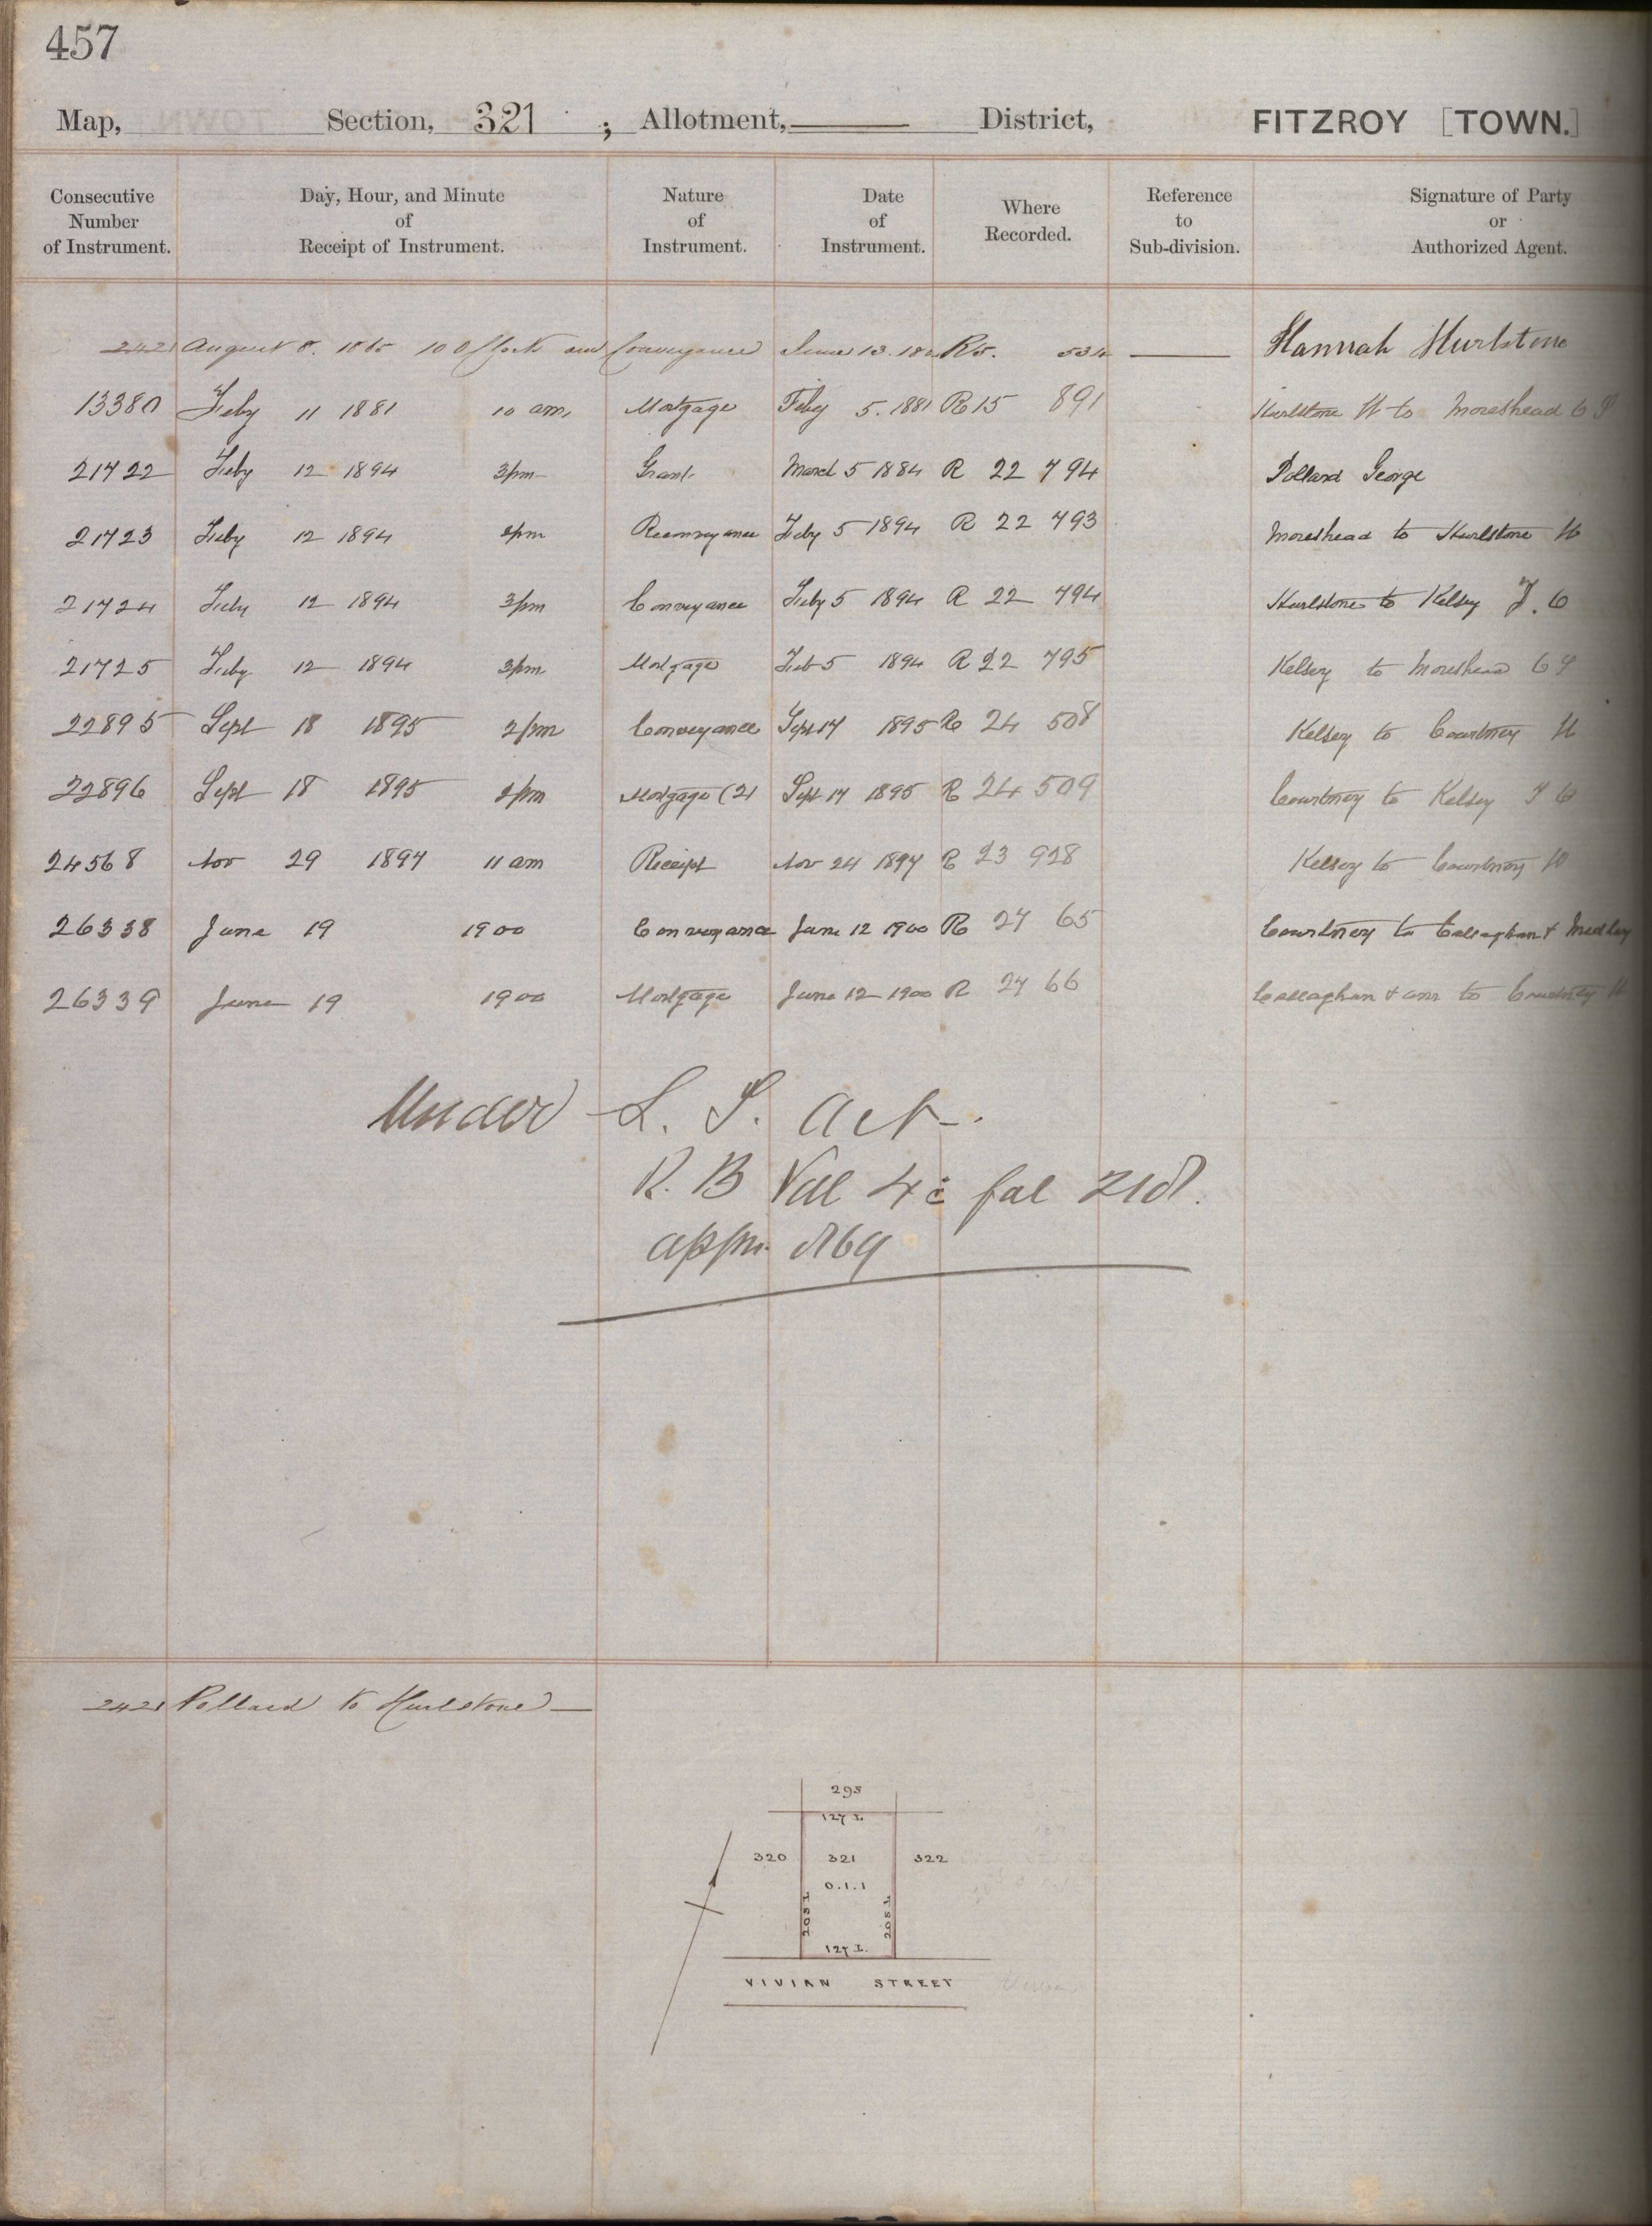 457
Map, Section, 321 ; Allotment, District, FITZROY [TOWN.]
Consecutive Number of Instrument. Day, Hour, and Minute of Receipt of Instrument. Nature of Instrument. Date of Instrument. Where Recorded. Reference to Sub-division. Signature of Party or Authorized Agent.
2421 August 8. 1865 10 O'Clock Conveyance June 13. R5. 534 Hannah Hurlstone
13380 Feby 11 1881 10 am, Mortgage Feby 5. 1881 R 15 891 Hurlstone H to Moreshead
21722 Feby 12 1894 3pm Grant March 5 1884 R 22 794 Pollard George
21723 Feby 12 1894 3pm Reconveyance Feby 5 1894 R 22 793 Moreshead to Hurlstone H
21724 Feby 12 1894 3pm Conveyance Feby 5 1894 R 22 794 Hurlstone to Kelsey J. C
21725 Feby 12 1894 3pm Mortgage Feb 5 1894 R 22 795 Kelsey to Moreshead
22895 Sept 18 1895 2pm Conveyance Sept 17 1895 R 24 508 Kelsey to Courtney H
22896 Sept 18 1895 2pm Mortgage (2) Sept 17 1895 R 24 509 Courtney to Kelsey J C
24568 Nov 29 1897 11 am Receipt Nov 24 1897 R 23 928 Kelsey to Courtney H
26338 June 19 1900 Conveyance June 12 1900 R 27 65 Courtney to Callaghan & Medley
26339 June 19 1900 Mortgage June 12 1900 R 27 66 Callaghan & anr to Courtney H
Under L. T. Act.
R. B Vol 42 fol 218.
appn. 8769
2421 Pollard to Hurlstone
295
127 L.
320 321 322
0.1.1
205 L 205 L
127 L.
VIVIAN STREET